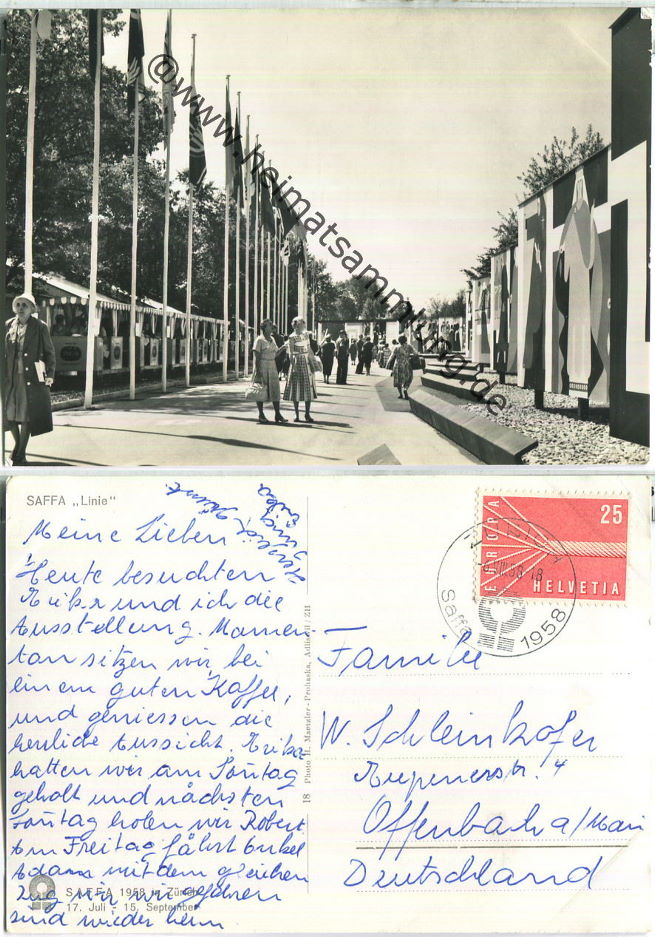 @www.heimatsammlung.de
SAFFA „Linie“
Herzlich grüsst
Euch
Erika
Meine Lieben!
Heute besuchten
Erika und ich die
Ausstellung. Momen-
tan sitzen wir bei
einem guten Kaffee,
und geniessen die
herrliche Aussicht. Erika
hatten wir am Sonntag
geholt und nächsten
Sonntag holen wir Robert.
Am Freitag fährt Onkel
Adam mit dem gleichen
Zug wir wir gefahren
sind wieder heim.
SAFFA 1958 in Zürich
17. Juli - 15. September
18 Photo H. Maetzler-Prohaska, Adliswil / ZH
EUROPA
25
HELVETIA
VIII.58-18
Saffa 1958
Familie
W. Schleinkofer
4
Offenbach a/Main
Deutschland